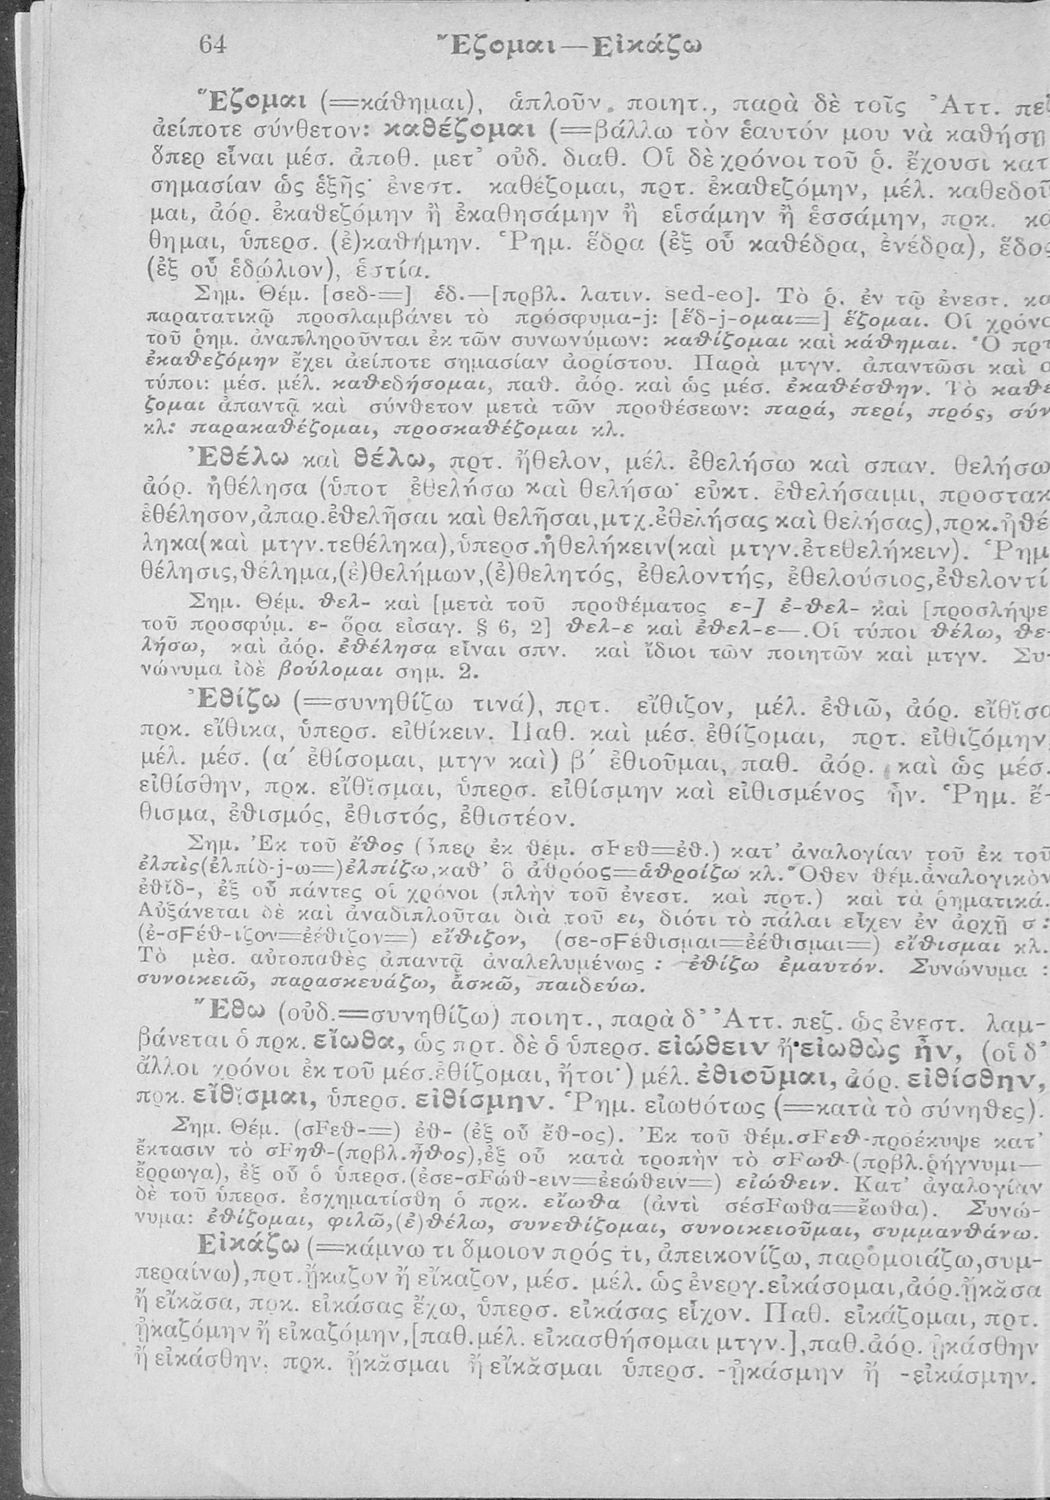 64 Ἕζομαι—Εἰκάζω
Ἕζομαι (=κάθημαι), ἁπλοῦν ποιητ., παρὰ δὲ τοῖς Ἀττ.
ἀείποτε σύνθετον: καθέζομαι (=βάλλω τὸν ἑαυτόν μου νὰ καθήσῃ
ὅπερ εἶναι μέσ. ἀποθ. μετ' οὐδ. διαθ. Οἱ δὲ χρόνοι τοῦ ῥ. ἔχουσι κατ
σημασίαν ὡς ἑξῆς· ἐνεστ. καθέζομαι, πρτ. ἐκαθεζόμην, μέλ. καθεδοῦ
μαι, ἀόρ. ἐκαθεζόμην ἢ ἐκαθησάμην ἢ εἱσάμην ἢ ἑσσάμην, πρκ. κά
θημαι, ὑπερσ. (ἐ)καθήμην. Ῥημ. ἕδρα (ἐξ οὗ καθέδρα, ἐνέδρα), ἕδος
(ἐξ οὗ ἑδώλιον), ἑστία.
Σημ. Θέμ. [σεδ-=] ἑδ.—[πρβλ. λατιν. sed-eo]. Τὸ ῥ. ἐν τῷ ἐνεστ. κα
παρατατικῷ προσλαμβάνει τὸ πρόσφυμα-j: [ἕδ-j-ομαι=] ἕζομαι. Οἱ χρόνο
τοῦ ῥημ. ἀναπληροῦνται ἐκ τῶν συνωνύμων: καθίζομαι καὶ κάθημαι. Ὁ πρτ
ἐκαθεζόμην ἔχει ἀείποτε σημασίαν ἀορίστου. Παρὰ μτγν. ἀπαντῶσι καὶ ο
τύποι: μέσ. μέλ. καθεδήσομαι, παθ. ἀόρ. καὶ ὡς μέσ. ἐκαθέσθην. Τὸ καθέ
ζομαι ἀπαντᾷ καὶ σύνθετον μετὰ τῶν προθέσεων: παρά, περί, πρός, σύν
κλ: παρακαθέζομαι, προσκαθέζομαι κλ.
Ἐθέλω καὶ θέλω, πρτ. ἤθελον, μέλ. ἐθελήσω καὶ σπαν. θελήσω
ἀόρ. ἠθέλησα (ὑποτ ἐθελήσω καὶ θελήσω· εὐκτ. ἐθελήσαιμι, προστακ
ἐθέλησον, ἀπαρ. ἐθελῆσαι καὶ θελῆσαι, μτχ. ἐθελήσας καὶ θελήσας), πρκ. ἠθέ
ληκα (καὶ μτγν. τεθέληκα), ὑπερσ. ἠθελήκειν (καὶ μτγν. ἐτεθελήκειν). Ῥημ
θέλησις, θέλημα, (ἐ)θελήμων, (ἐ)θελητός, ἐθελοντής, ἐθελούσιος, ἐθελοντί
Σημ. Θέμ. θελ- καὶ [μετὰ τοῦ προθέματος ε-] ἐ-θελ- καὶ [προσλήψε
τοῦ προσφύμ. ε- ὅρα εἰσαγ. § 6, 2] θελ-ε καὶ ἐθελ-ε—. Οἱ τύποι θέλω, θε-
λήσω, καὶ ἀόρ. ἐθέλησα εἶναι σπν. καὶ ἴδιοι τῶν ποιητῶν καὶ μτγν. Συ-
νώνυμα ἰδὲ βούλομαι σημ. 2.
Ἐθίζω (=συνηθίζω τινά), πρτ. εἴθιζον, μέλ. ἐθιῶ, ἀόρ. εἴθῐσα
πρκ. εἴθικα, ὑπερσ. εἰθίκειν. Παθ. καὶ μέσ. ἐθίζομαι, πρτ. εἰθιζόμην
μέλ. μέσ. (α΄ ἐθίσομαι, μτγν καὶ) β΄ ἐθιοῦμαι, παθ. ἀόρ. καὶ ὡς μέσ.
εἰθίσθην, πρκ. εἴθῐσμαι, ὑπερσ. εἰθίσμην καὶ εἰθισμένος ἦν. Ῥημ. ἔ-
θισμα, ἐθισμός, ἐθιστός, ἐθιστέον.
Σημ. Ἐκ τοῦ ἔθος (ὅπερ ἐκ θέμ. σFεθ=ἐθ.) κατ' ἀναλογίαν τοῦ ἐκ τοῦ
ἐλπὶς (ἐλπίδ-j-ω=) ἐλπίζω, καθ' ὃ ἀθρόος=ἀθροίζω κλ. Ὅθεν θέμ. ἀναλογικὸν
ἐθῐδ-, ἐξ οὗ πάντες οἱ χρόνοι (πλὴν τοῦ ἐνεστ. καὶ πρτ.) καὶ τὰ ῥηματικά.
Αὐξάνεται δὲ καὶ ἀναδιπλοῦται διὰ τοῦ ει, διότι τὸ πάλαι εἶχεν ἐν ἀρχῇ σ:
(ἐ-σFέθ-ιζον=ἐέθιζον=) εἴθιζον, (σε-σFέθισμαι=ἐέθισμαι=) εἴθισμαι κλ.
Τὸ μέσ. αὐτοπαθὲς ἀπαντᾷ ἀναλελυμένως: ἐθίζω ἐμαυτόν. Συνώνυμα:
συνοικειῶ, παρασκευάζω, ἀσκῶ, παιδεύω.
Ἔθω (οὐδ.=συνηθίζω) ποιητ., παρὰ δ' Ἀττ. πεζ. ὡς ἐνεστ. λαμ-
βάνεται ὁ πρκ. εἴωθα, ὡς πρτ. δὲ ὁ ὑπερσ. εἰώθειν ἢ εἰωθὼς ἦν, (οἱ δ'
ἄλλοι χρόνοι ἐκ τοῦ μέσ. ἐθίζομαι, ἤτοι·) μέλ. ἐθιοῦμαι, ἀόρ. εἰθίσθην,
πρκ. εἴθῐσμαι, ὑπερσ. εἰθίσμην. Ῥημ. εἰωθότως (=κατὰ τὸ σύνηθες).
Σημ. Θέμ. (σFεθ-=) ἐθ- (ἐξ οὗ ἔθ-ος). Ἐκ τοῦ θέμ. σFεθ- προέκυψε κατ'
ἔκτασιν τὸ σFηθ- (πρβλ. ἦθος), ἐξ οὗ κατὰ τροπὴν τὸ σFωθ- (πρβλ. ῥήγνυμι—
ἔρρωγα), ἐξ οὗ ὁ ὑπερσ. (ἐσε-σFώθ-ειν=ἐεώθειν=) εἰώθειν. Κατ' ἀναλογίαν
δὲ τοῦ ὑπερσ. ἐσχηματίσθη ὁ πρκ. εἴωθα (ἀντὶ σέσFωθα=ἔωθα). Συνώ-
νυμα: ἐθίζομαι, φιλῶ, (ἐ)θέλω, συνεθίζομαι, συνοικειοῦμαι, συμμανθάνω.
Εἰκάζω (=κάμνω τι ὅμοιον πρός τι, ἀπεικονίζω, παρομοιάζω, συμ-
περαίνω), πρτ. ᾔκαζον ἢ εἴκαζον, μέσ. μέλ. ὡς ἐνεργ. εἰκάσομαι, ἀόρ. ᾔκᾰσα
ἢ εἴκᾰσα, πρκ. εἰκάσας ἔχω, ὑπερσ. εἰκάσας εἶχον. Παθ. εἰκάζομαι, πρτ.
ᾐκαζόμην ἢ εἰκαζόμην, [παθ. μέλ. εἰκασθήσομαι μτγν.], παθ. ἀόρ. ᾐκάσθην
ἢ εἰκάσθην, πρκ. ᾔκᾰσμαι ἢ εἴκᾰσμαι ὑπερσ. -ᾐκάσμην ἢ -εἰκάσμην.